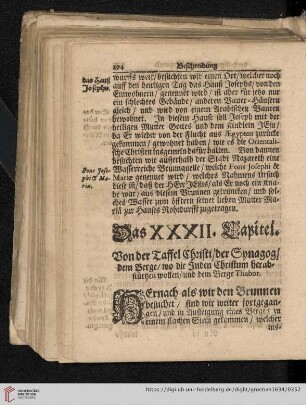 294 Beschreibung
das Hauß
Josephs.
wurffs weit/ besuchten wir einen Ort/ welcher noch
auff den heutigen Tag das Hauß Josephs/ von den
Einwohnern/ genennet wird/ ist aber für jetzo nur
ein schlechtes Gebäude/ anderen Bauer-Häusern
gleich/ und wird von einem Arabischen Bauren
bewohnet. In diesem Hause soll Joseph mit der
heiligen Mutter Gottes und dem Kindlein JEsu/
da Er wieder von der Flucht aus Egypten zurücke
gekommen/ gewohnet haben/ wie es die Orientali-
sche Christen insgemein dafür halten. Von dannen
Fons Jose-
phi & Ma-
riæ.
besuchten wir außerhalb der Stadt Nazareth eine
Wasserreiche Brunnquelle/ welche Fons Josephi &
Mariæ genennet wird/ welches Nahmens Ursach
diese ist/ daß der HErr JEsus/ als Er noch ein Kna-
be war/ aus diesem Brunnen getruncken/ und sol-
ches Wasser zum öfftern seiner lieben Mutter Ma-
riä zur Hauses Nohtdurfft zugetragen.
Das XXXII. Capitel.
Von der Taffel Christi/ der Synagog/
dem Berge/ wo die Juden Christum herab-
stürtzen wollen/ und dem Berge Thabor.
HErnach als wir den Brunnen
besuchet/ sind wir weiter fortgegan-
gen/ und in Aufsteigung eines Berges zu
einem flachen Stein gekommen/ welcher
ins-
http://digi.ub.uni-heidelberg.de/diglit/groeben1694/0352